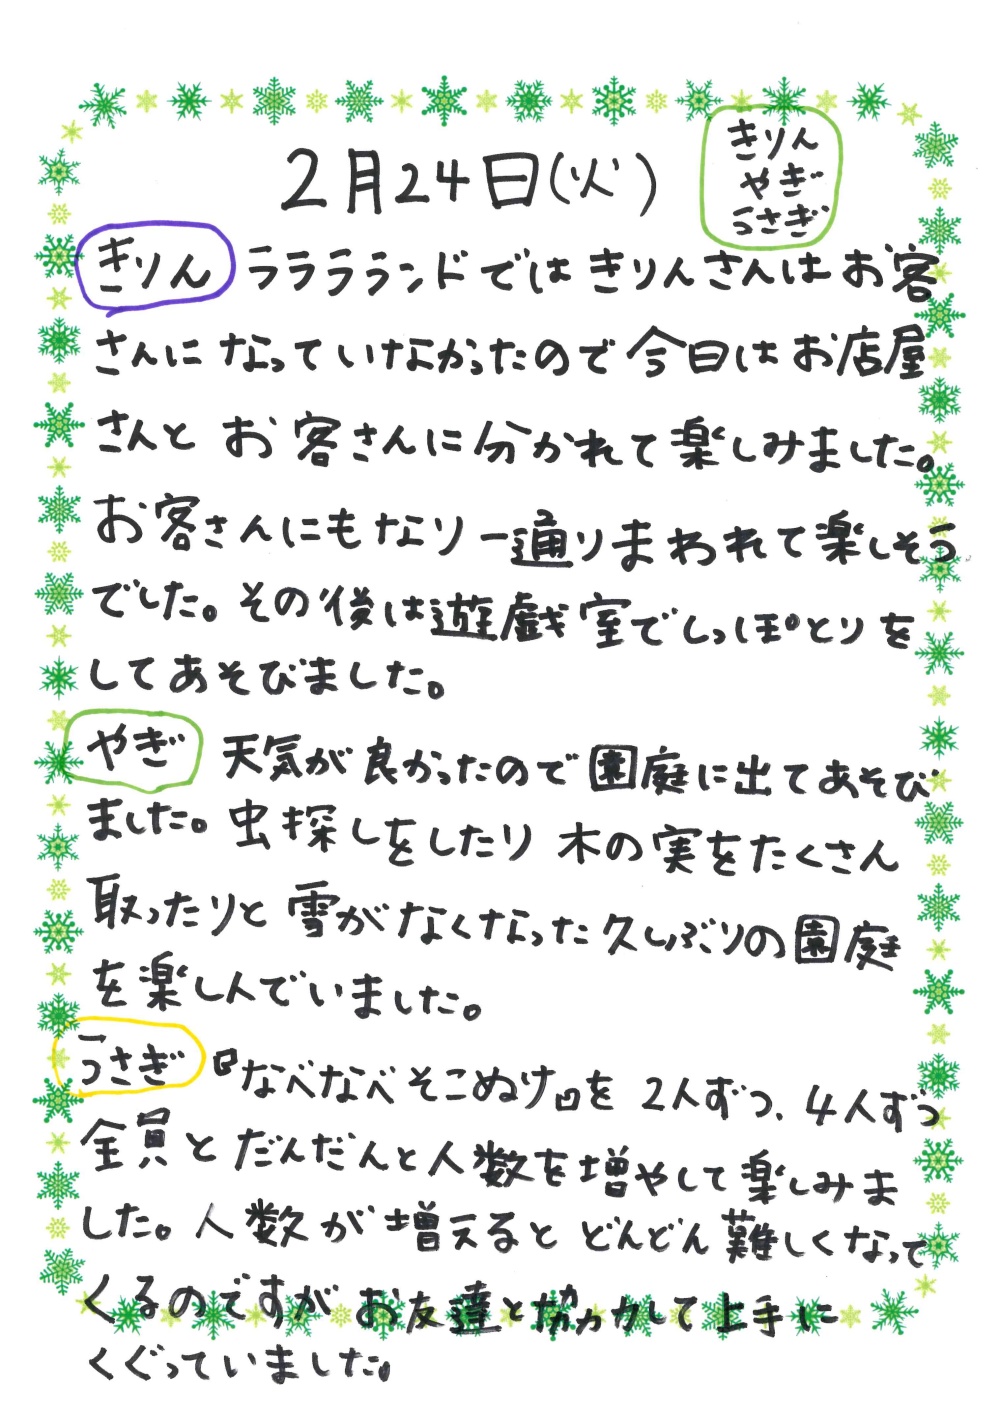 2月24日(火)
きりん
やぎ
うさぎ
きりん ララララランドではきりんさんはお客
さんになっていなかったので今日はお店屋
さんとお客さんに分かれて楽しみました。
お客さんにもなり一通りまわれて楽しそう
でした。その後は遊戯室でしっぽとりを
してあそびました。
やぎ 天気が良かったので園庭に出てあそび
ました。虫探しをしたり木の実をたくさん
取ったりと雪がなくなった久しぶりの園庭
を楽しんでいました。
うさぎ 『なべなべそこぬけ』を2人ずつ、4人ずつ
全員とだんだんと人数を増やして楽しみま
した。人数が増えるとどんどん難しくなって
くるのですがお友達と協力して上手に
くぐっていました。